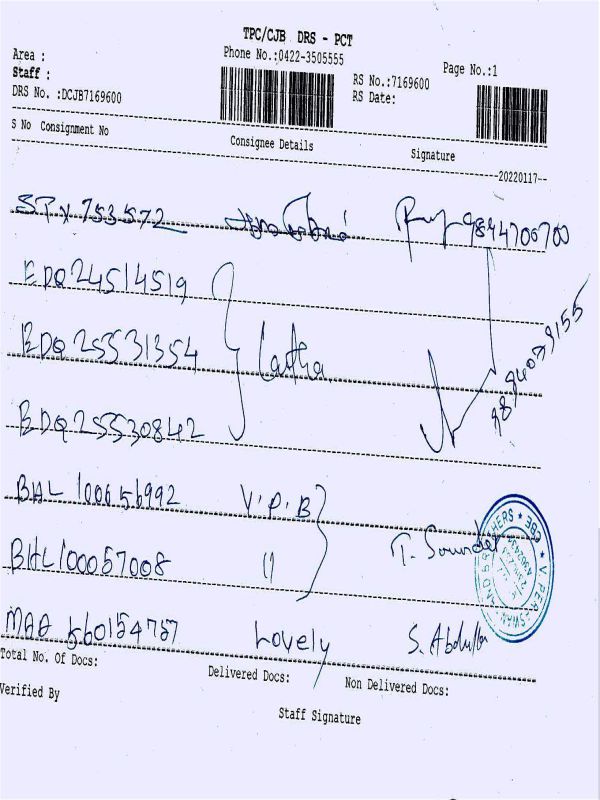 TPC/CJB DRS - PCT
Area : Phone No.:0422-3505555 Page No.:1
Staff : RS No.:7169600
DRS No. :DCJB7169600 RS Date:
S No Consignment No Consignee Details Signature
--20220117--
753572 9844706700
EDQ24514519
EDQ 25531354 Latha 9894079155
EDQ 25530842
BHL 100656992 V.P.B
BHL 100057008 11 T. Sounder
MAA 560154757 Lovely S. Abdulla
Total No. Of Docs: Delivered Docs: Non Delivered Docs:
Verified By Staff Signature